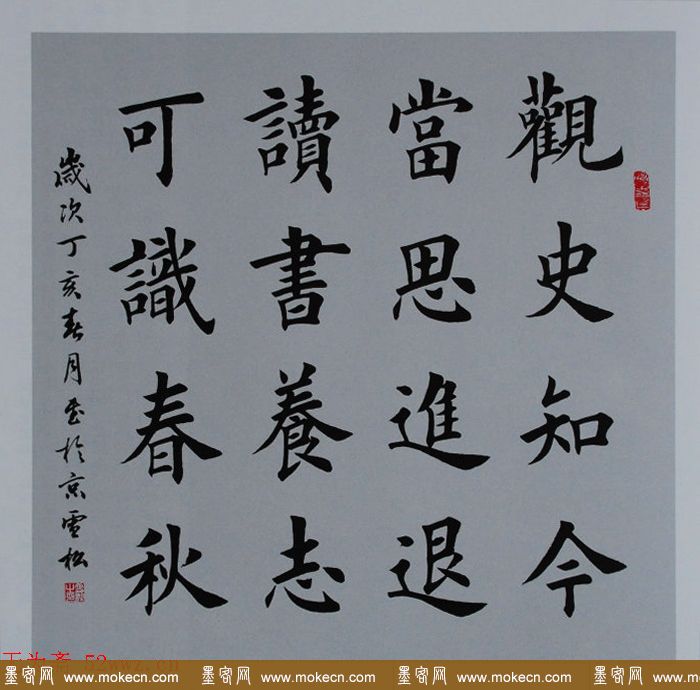 觀史知今
當思進退
讀書養志
可識春秋
歲次丁亥春月書於京雪松
52wwz.cn
墨客网 www.mokecn.com 墨客网 www.mokecn.com 墨客网 www.mokecn.com 墨客网 www.mokecn.com